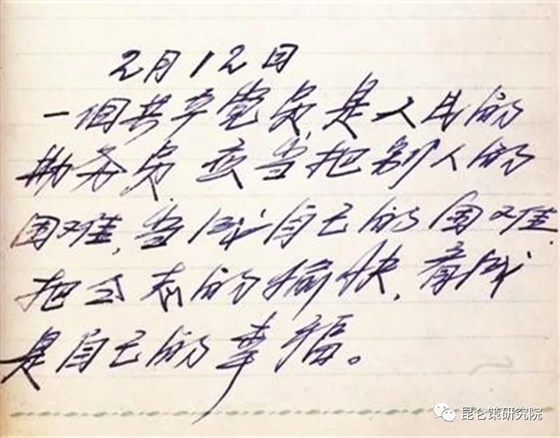 2月12日
一個共产党员,是人民的
勤务员 应当把别人的
困难,当成自己的困难.
把同志的愉快,看成
是自己的幸福。
昆仑策研究院